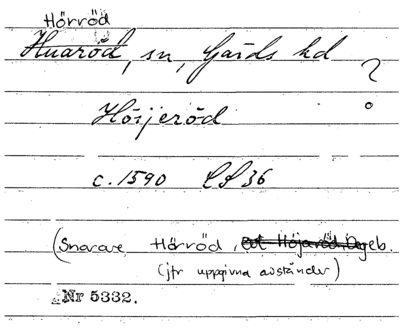 Hörröd
Huaröd, sn, Gärds hd
?
Höijeröd
c. 1590 CS 36
(Snarare Hörröd, Höjaröd, Degeb.
(jfr uppgivna avstånder)
Nr 5332.